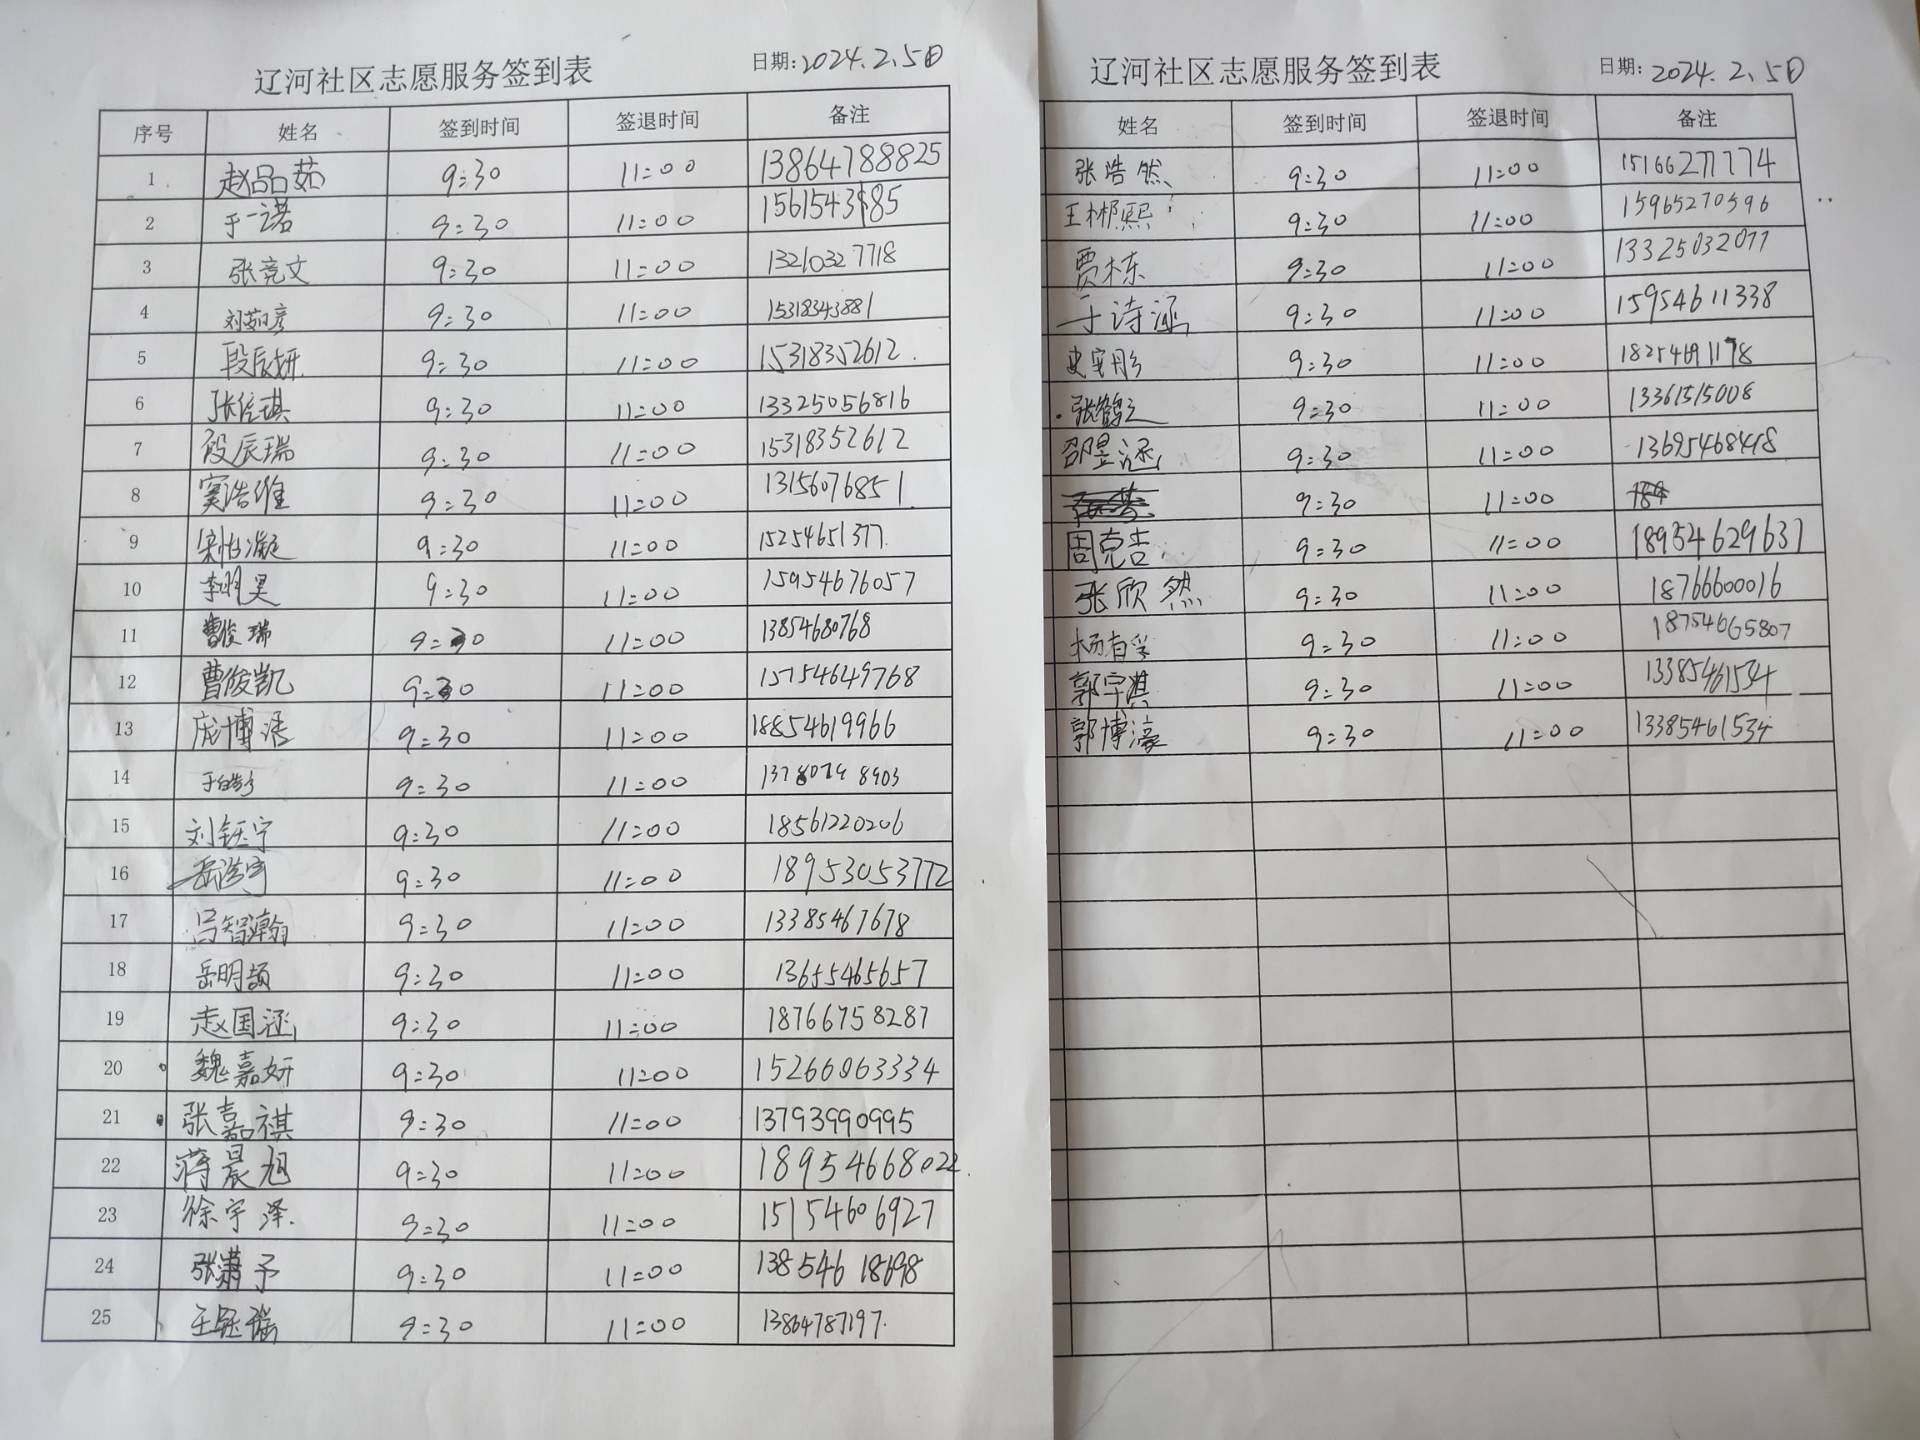 辽河社区志愿服务签到表 日期:2024.2.5日
序号 姓名 签到时间 签退时间 备注
1 赵品茹 9:30 11:00 13864788825
2 于一诺 9:30 11:00
3 张竞文 9:30 11:00 13210327718
4 9:30 11:00 15318343881
5 段辰妍 9:30 11:00 15318352612.
6 9:30 11:00 13325056816
7 段辰瑞 9:30 11:00 15318352612
8 窦浩维 9:30 11:00 13156076851
9 9:30 11:00 15254651377
10 李明昊 9:30 11:00 15954676057
11 曹俊瑞 9:30 11:00 13854680768
12 曹俊凯 9:30 11:00 15754649768
13 庞博浯 9:30 11:00 18854619966
14 9:30 11:00
15 刘钰宁 9:30 11:00 18561220206
16 岳浩宇 9:30 11:00 18953053772
17 吕智瀚 9:30 11:00 13385467678
18 岳明颉 9:30 11:00 13655465657
19 赵国涵 9:30 11:00 18766758287
20 魏嘉妍 9:30 11:00 15266063334
21 张嘉祺 9:30 11:00 13793990995
22 蒋晨旭 9:30 11:00 18954668022
23 徐宇泽 9:30 11:00 15154606927
24 张潇予 9:30 11:00 13854618698
25 王钰瑶 9:30 11:00 13864787197
辽河社区志愿服务签到表 日期:2024.2.5日
姓名 签到时间 签退时间 备注
张浩然 9:30 11:00 15166277774
王彬熙 9:30 11:00 15965270596
贾栋 9:30 11:00 13325032077
于诗涵 9:30 11:00 15954611338
史宝彤 9:30 11:00 18254691178
张鹤之 9:30 11:00 13361515008
邵昱涵 9:30 11:00 13695468418
9:30 11:00
周克吉 9:30 11:00 18954629637
张欣然 9:30 11:00 18766600016
杨有孚 9:30 11:00 18754665807
郭宇淇 9:30 11:00 13385461534
郭博濠 9:30 11:00 13385461534